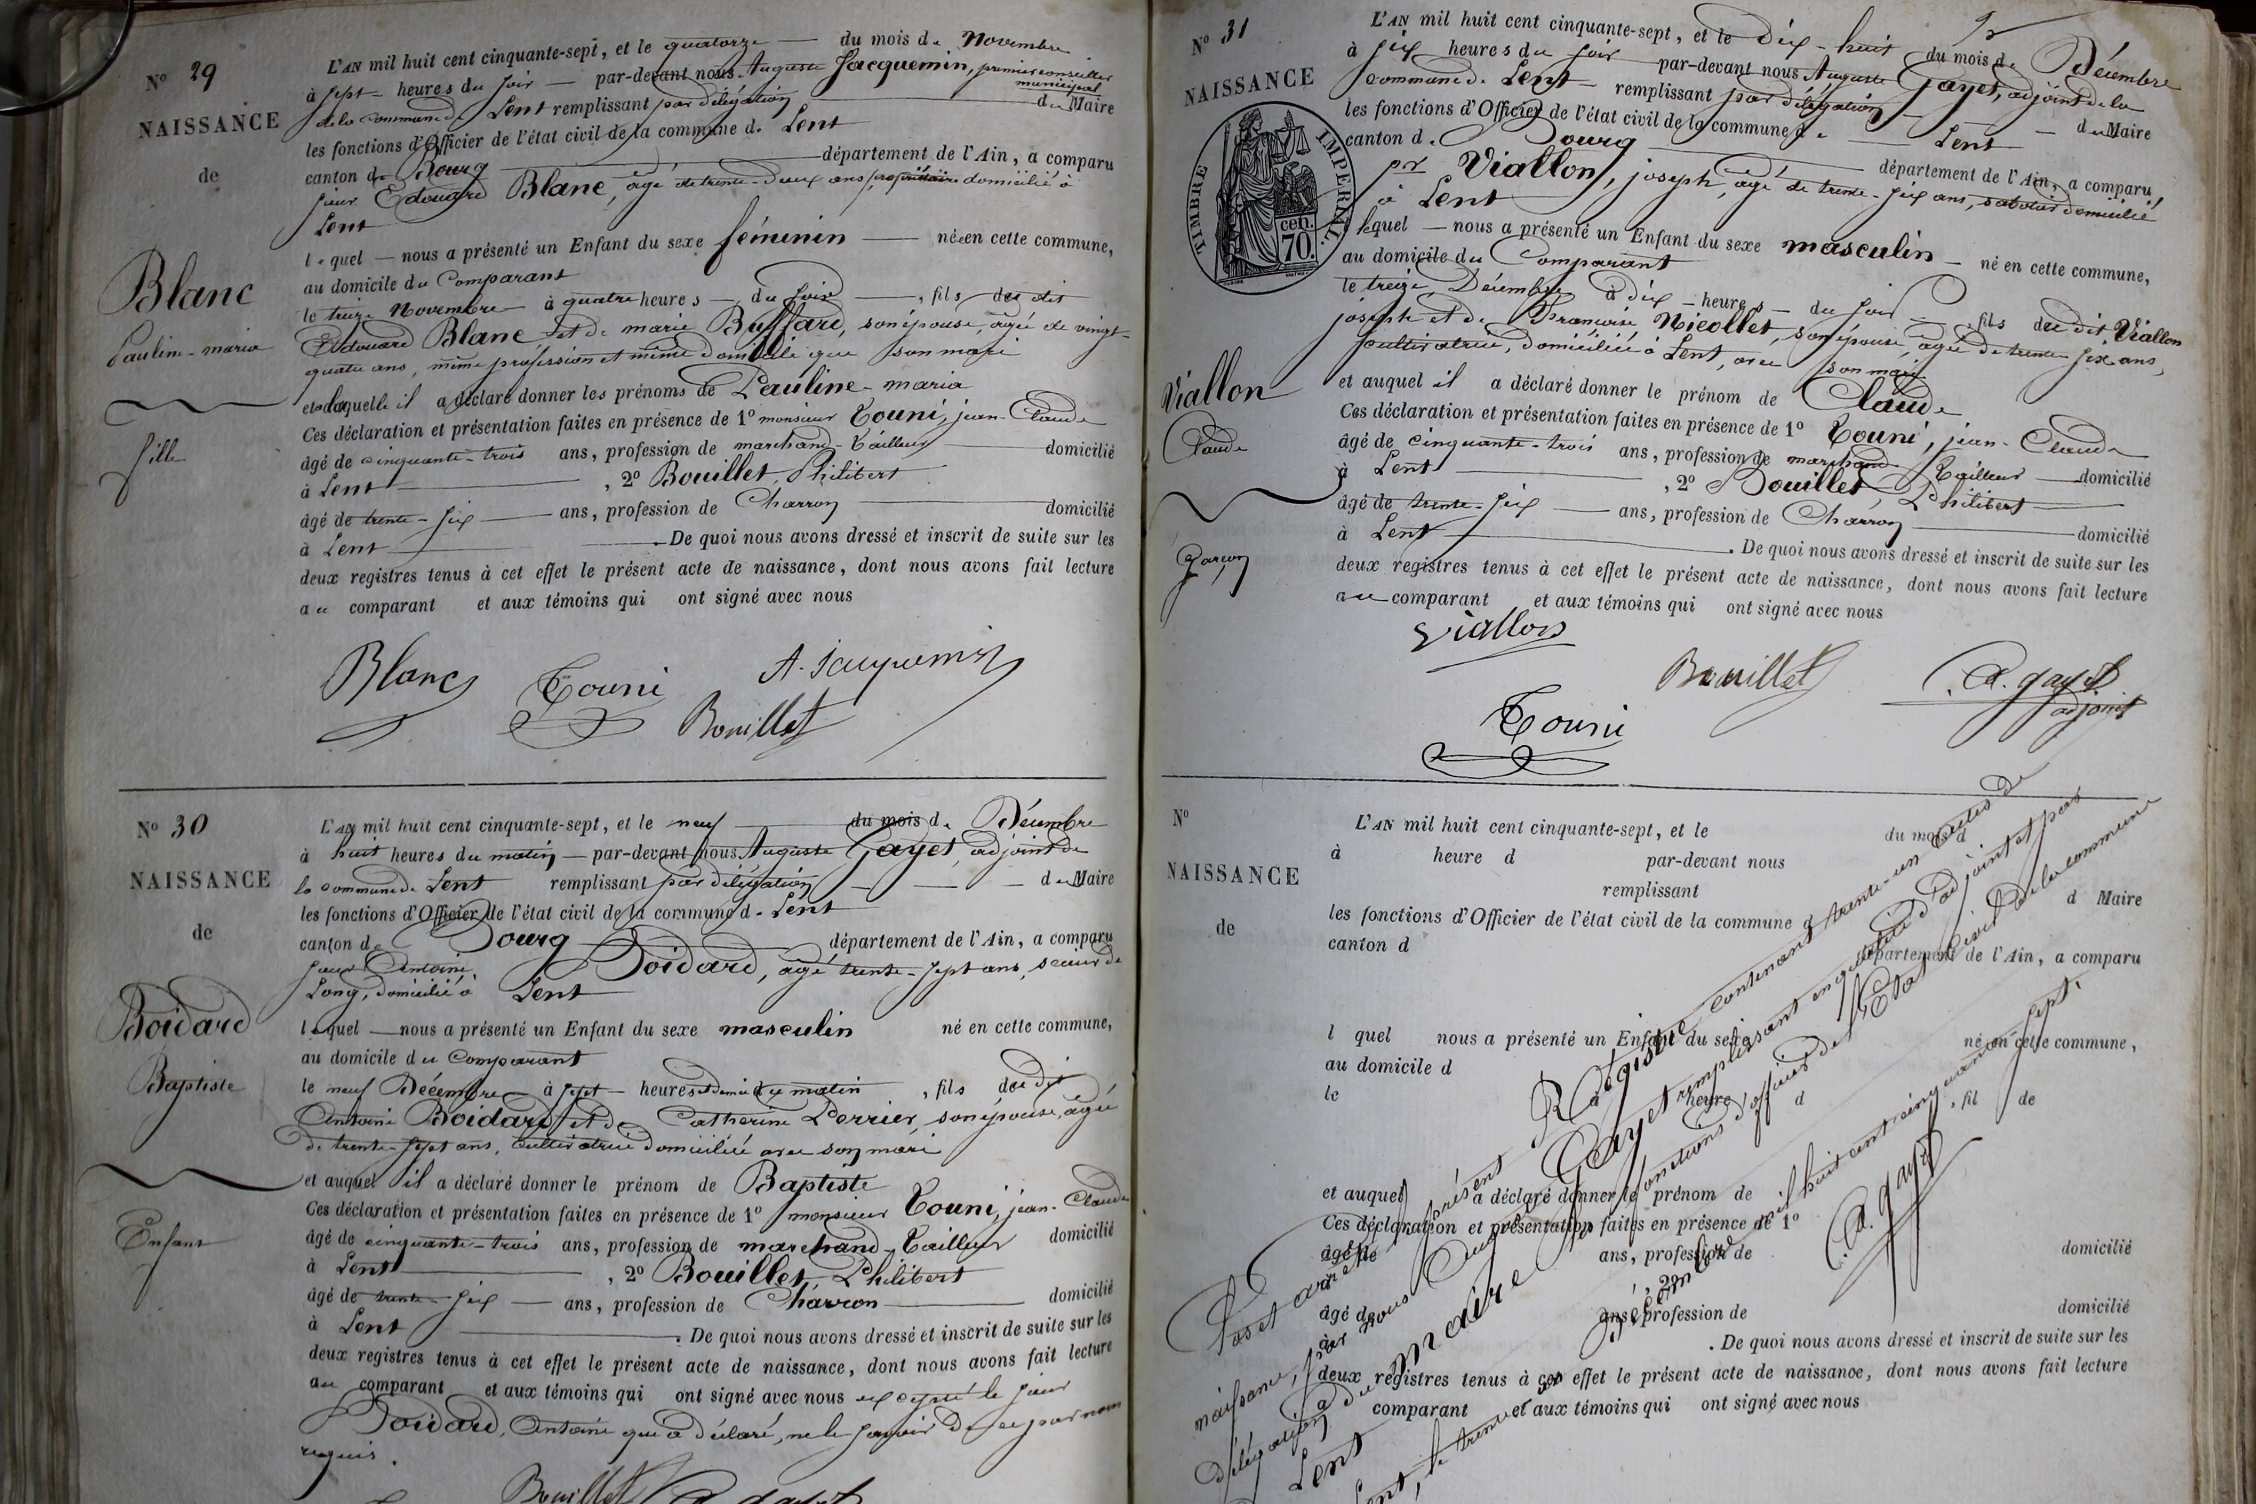 N° 29
NAISSANCE
de
Blanc
Pauline-maria
fille
L'AN mil huit cent cinquante-sept, et le quatorze du mois de Novembre
à sept heures du soir par-devant nous Auguste Jacquemin, premier conseiller municipal
de la commune de Lent remplissant par délégation du Maire
les fonctions d'Officier de l'état civil de la commune de Lent
canton de Bourg département de l'Ain, a comparu
sieur Edouard Blanc, âgé de trente-deux ans, propriétaire domicilié à
Lent
lequel nous a présenté un Enfant du sexe féminin née en cette commune,
au domicile du Comparant
le treize Novembre à quatre heures du soir, fils du dit
Edouard Blanc et de marie Buffard, son épouse, âgée de vingt-
quatre ans, même profession et même domicile que son mari
et à laquelle il a déclaré donner les prénoms de Pauline-maria
Ces déclaration et présentation faites en présence de 1° monsieur Touni, jean-Claude
âgé de cinquante-trois ans, profession de marchand-Tailleur domicilié
à Lent, 2° Bouillet, Philibert
âgé de trente-six ans, profession de Charron domicilié
à Lent. De quoi nous avons dressé et inscrit de suite sur les
deux registres tenus à cet effet le présent acte de naissance, dont nous avons fait lecture
au comparant et aux témoins qui ont signé avec nous
Blanc Touni A. Jacquemin
Bouillet
N° 30
NAISSANCE
de
Boidard
Baptiste
Enfant
L'AN mil huit cent cinquante-sept, et le neuf du mois de Décembre
à huit heures du matin par-devant nous Auguste Gayet, adjoint de
la commune de Lent remplissant par délégation du Maire
les fonctions d'Officier de l'état civil de la commune de Lent
canton de Bourg département de l'Ain, a comparu
sieur Antoine Boidard, âgé trente-sept ans, scieur de
Long, domicilié à Lent
lequel nous a présenté un Enfant du sexe masculin né en cette commune,
au domicile du Comparant
le neuf Décembre à sept heures et demie du matin, fils du dit
Antoine Boidard et de Catherine Perrier, son épouse, âgée
de trente-sept ans, cultivatrice domiciliée avec son mari
et auquel il a déclaré donner le prénom de Baptiste
Ces déclaration et présentation faites en présence de 1° monsieur Touni, jean-Claude
âgé de cinquante-trois ans, profession de marchand-Tailleur domicilié
à Lent, 2° Bouillet, Philibert
âgé de trente-six ans, profession de Charron domicilié
à Lent. De quoi nous avons dressé et inscrit de suite sur les
deux registres tenus à cet effet le présent acte de naissance, dont nous avons fait lecture
au comparant et aux témoins qui ont signé avec nous excepté le sieur
Boidard, Antoine qui a déclaré, ne le savoir de ce par nous
requis.
Bouillet
N° 31
NAISSANCE
TIMBRE IMPERIAL
70 cen.
Viallon
Claude
garçon
L'AN mil huit cent cinquante-sept, et le dix-huit du mois de Décembre
à six heures du soir par-devant nous Auguste Gayet, adjoint de la
commune de Lent remplissant par délégation du Maire
les fonctions d'Officier de l'état civil de la commune de Lent
canton de Bourg département de l'Ain, a comparu
Viallon, joseph, âgé de trente-six ans, sabotier domicilié
à Lent
lequel nous a présenté un Enfant du sexe masculin né en cette commune,
au domicile du Comparant
le treize Décembre à dix heures du soir, fils du dit Viallon
joseph et de Francoise Nicollet, son épouse, âgée de trente-six ans,
cultivatrice, domiciliée à Lent, avec son mari
et auquel il a déclaré donner le prénom de Claude
Ces déclaration et présentation faites en présence de 1° Touni, jean-Claude
âgé de cinquante-trois ans, profession de marchand Tailleur domicilié
à Lent, 2° Bouillet Philibert
âgé de trente-six ans, profession de Charron domicilié
à Lent. De quoi nous avons dressé et inscrit de suite sur les
deux registres tenus à cet effet le présent acte de naissance, dont nous avons fait lecture
au comparant et aux témoins qui ont signé avec nous
Viallon
Bouillet A. gayet
adjoint
Touni
N°
NAISSANCE
de
L'AN mil huit cent cinquante-sept, et le du mois d
à heure d par-devant nous
remplissant d Maire
les fonctions d'Officier de l'état civil de la commune d
canton d département de l'Ain, a comparu
l quel nous a présenté un Enfant du sexe né en cette commune,
au domicile d
le à heure d, fil de
et auquel a déclaré donner le prénom de
Ces déclaration et présentation faites en présence de 1°
âgé de ans, profession de domicilié
à, 2°
âgé de ans, profession de domicilié
à. De quoi nous avons dressé et inscrit de suite sur les
deux registres tenus à cet effet le présent acte de naissance, dont nous avons fait lecture
a comparant et aux témoins qui ont signé avec nous
Clos et arrêté le présent Régistre contenant trente-un actes de
naissance, par nous Auguste Gayet remplissant en qualité d'adjoint et par
délégation du maire les fonctions d'officier de l'Etat civil de la commune
Lent
Lent, le trente un Décembre mil huit cent cinquante-sept.
A. gayet